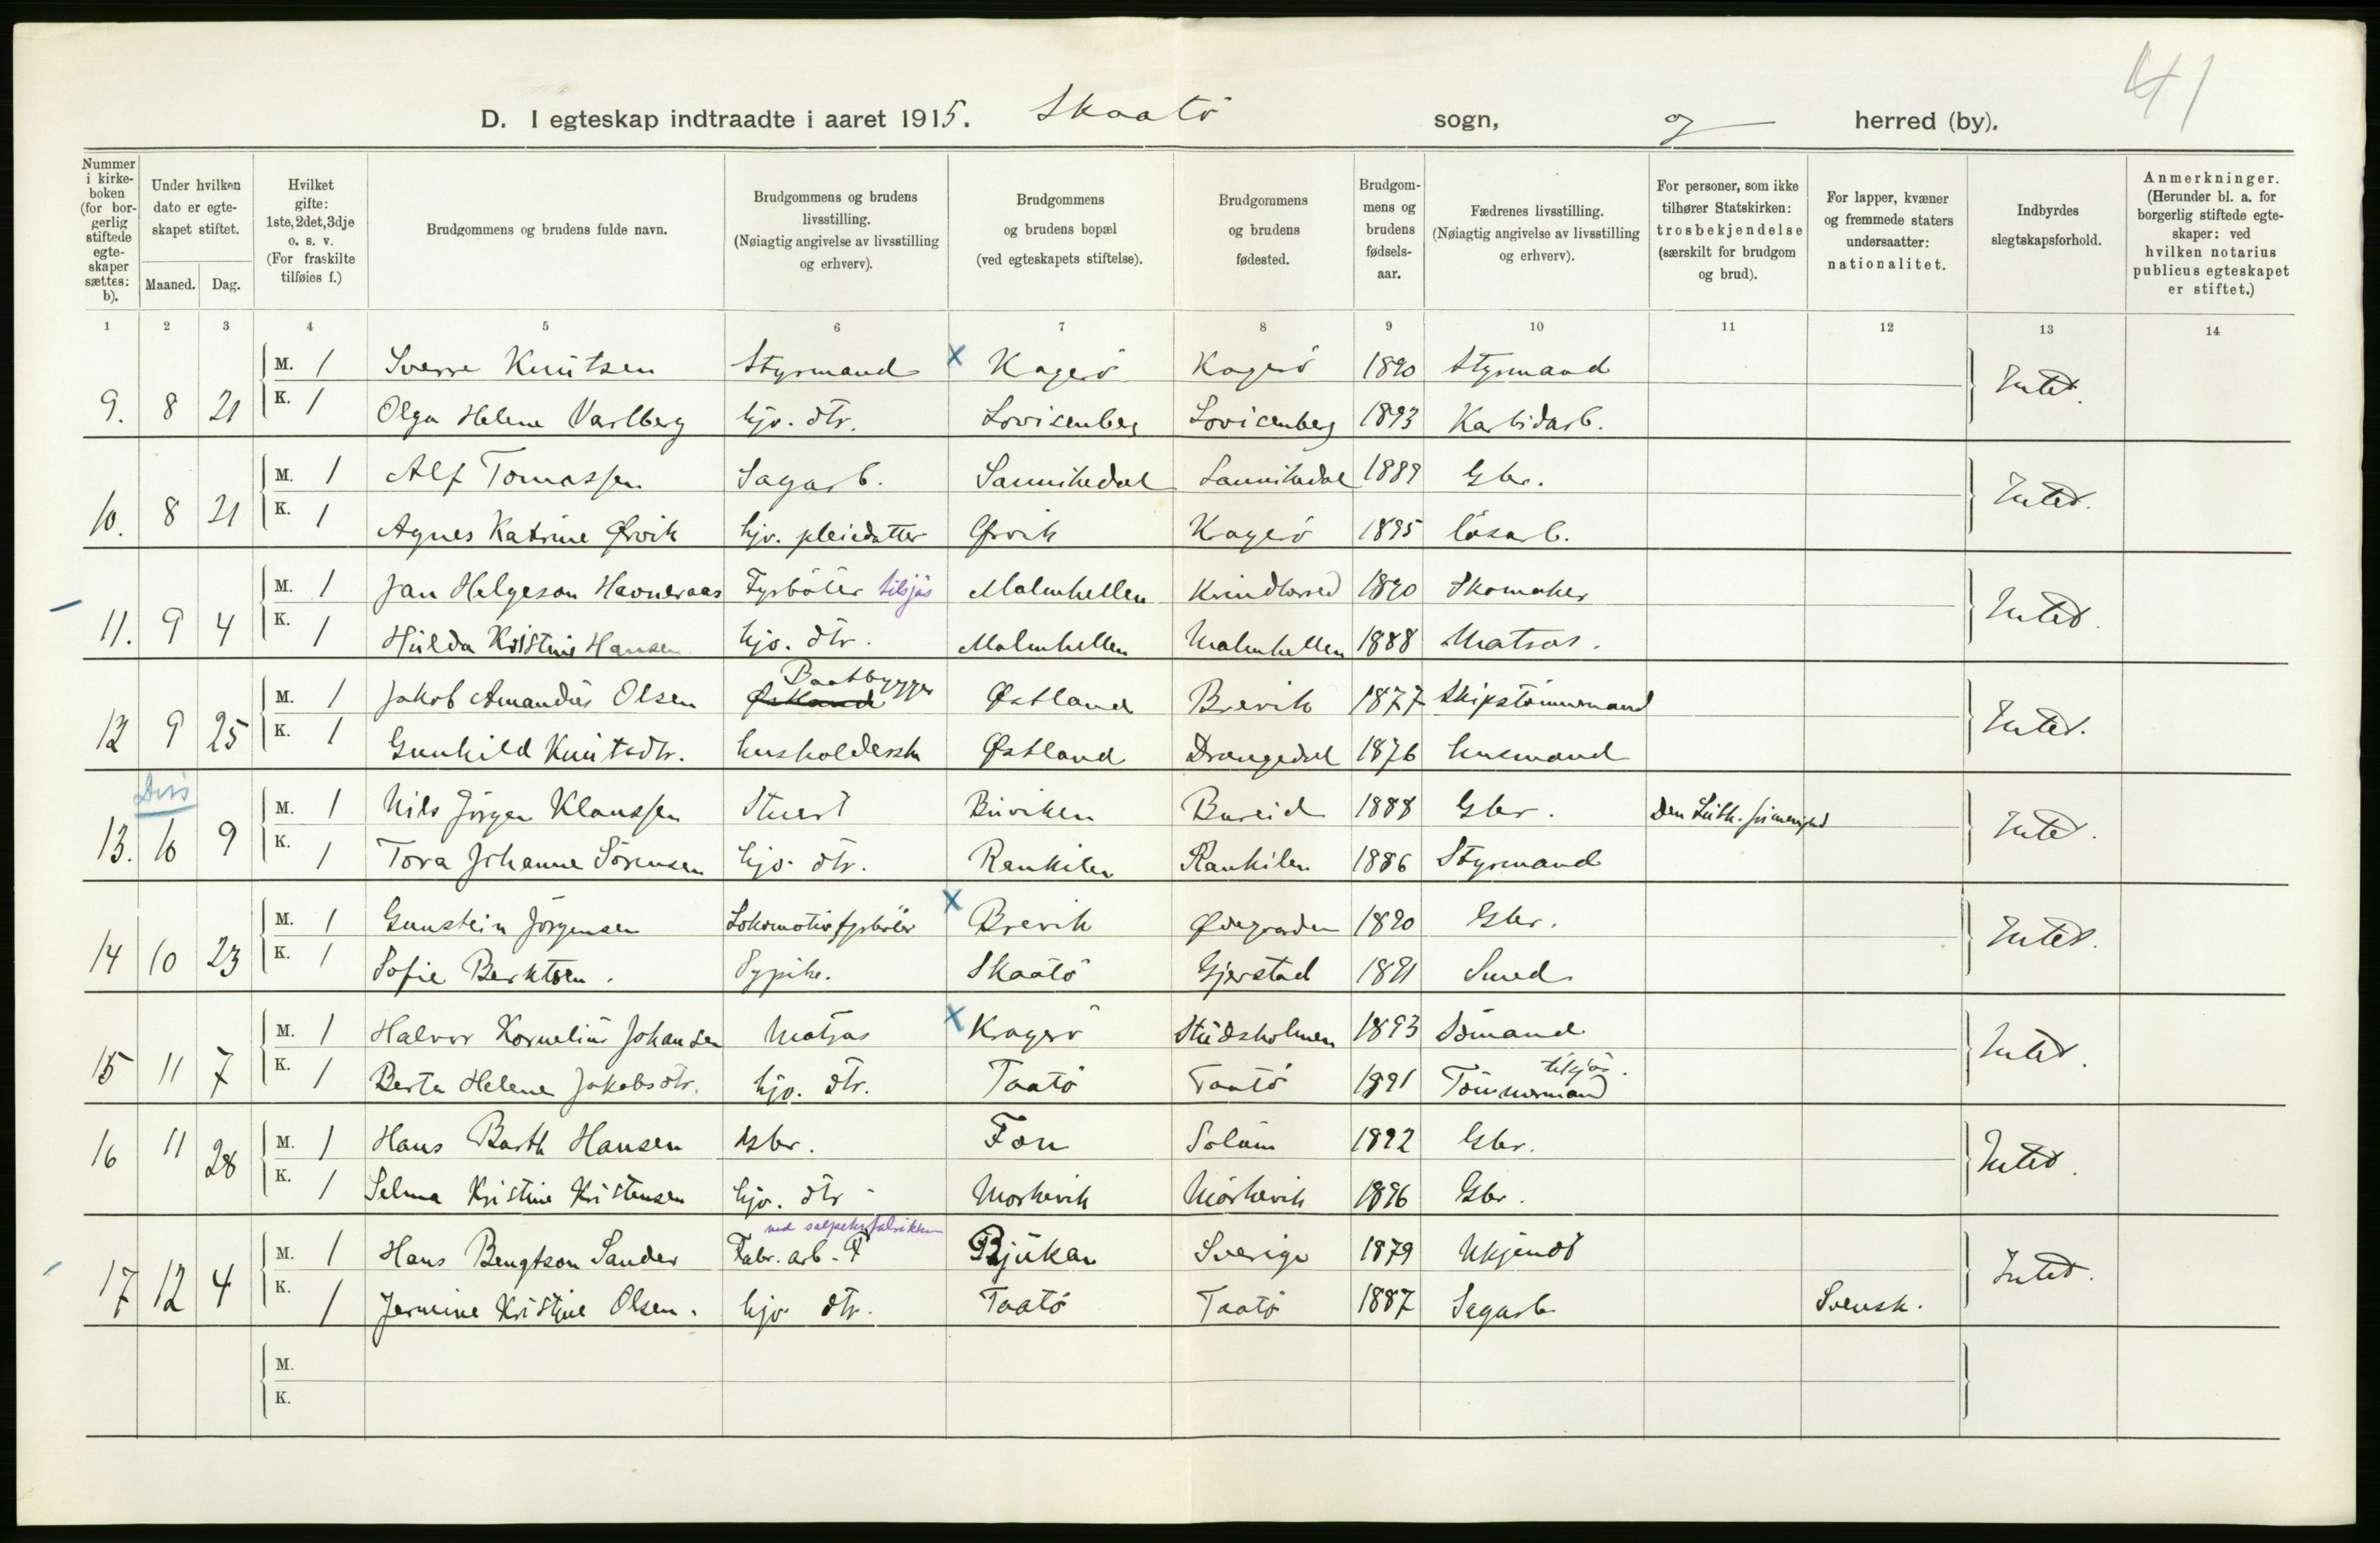 41
D. I egteskap indtraadte i aaret 1915. Skaatö sogn, og herred (by).
Nummer i kirkeboken (for borgerlig stiftede egteskaper sættes: b).
Under hvilken dato er egteskapet stiftet.
Maaned. Dag.
Hvilket gifte: 1ste, 2det, 3dje o. s. v. (For fraskilte tilføies f.)
Brudgommens og brudens fulde navn.
Brudgommens og brudens livsstilling. (Nøiagtig angivelse av livsstilling og erhverv).
Brudgommens og brudens bopæl (ved egteskapets stiftelse).
Brudgommens og brudens fødested.
Brudgommens og brudens fødselsaar.
Fædrenes livsstilling. (Nøiagtig angivelse av livsstilling og erhverv).
For personer, som ikke tilhører Statskirken: trosbekjendelse (særskilt for brudgom og brud).
For lapper, kvæner og fremmede staters undersaatter: nationalitet.
Indbyrdes slegtskapsforhold.
Anmerkninger. (Herunder bl. a. for borgerlig stiftede egteskaper: ved hvilken notarius publicus egteskapet er stiftet.)
1 2 3 4 5 6 7 8 9 10 11 12 13 14
M. 1 Sverre Knutsen Styrmand x Kragerö Kragerö 1890 Styrmand Intet.
9. 8 21 K. 1 Olga Helene Varlberg hjv. dtr. Lovisenberg Lovisenberg 1893 Karbidarb.
M. 1 Alf Tomassen Sagarb. Sannikedal Sannikedal 1889 Gbr. Intet.
10. 8 21 K. 1 Agnes Katrine Ørvik hjv. pleiedatter Ørvik Kragerö 1895 lösarb.
M. 1 Jan Helgeson Havneraas Fyrböter tilsjös Malmhellen Kvindherred 1890 Skomaker Intet.
11. 9 4 K. 1 Hulda Kristine Hansen hjv. dtr. Malmhellen Malmhellen 1888 Matros.
Baatbygger
M. 1 Jakob Amandus Olsen Østland Brevik 1877 Skipstömmermand Intet.
12 9 25 K. 1 Gunhild Knutsdtr. husholderske Østland Drangedal 1876 husmand
Diss
M. 1 Nils Jörgen Klaussen Stuert Buviken Bureid 1888 Gbr. Den Luth. frimenighed Intet.
13. 10 9 K. 1 Tora Johanne Sörensen hjv. dtr. Rankilen Rankilen 1886 Styrmand
M. 1 Gunstein Jörgensen Lokomotivfyrböter x Brevik Ødegaarden 1890 Gbr. Intet.
14 10 23 K. 1 Sofie Berktsen. Sypike. Skaatö Gjerstad 1891 Smed
M. 1 Halvor Kornelius Johansen Matros x Kragerö Studsholmen 1893 Sömand Intet.
tilsjös.
15 11 7 K. 1 Berta Helene Jakobsdtr. hjv. dtr. Taatö Taatö 1891 Tömmermand
M. 1 Hans Barth Hansen Gbr. Fon Solum 1892 Gbr. Intet.
16 11 28 K. 1 Selma Kristine Kristensen hjv. dtr. Morkevik Mörkevik 1896 Gbr.
ved salpeterfabrikken
M. 1 Hans Bengtson Sander Fabr. arb. Rjukan Sverige 1879 Ukjendt Intet.
17 12 4 K. 1 Jermine Kristine Olsen. hjv. dtr. Taatö Taatö 1887 Sagarb Svensk.
M.
K.